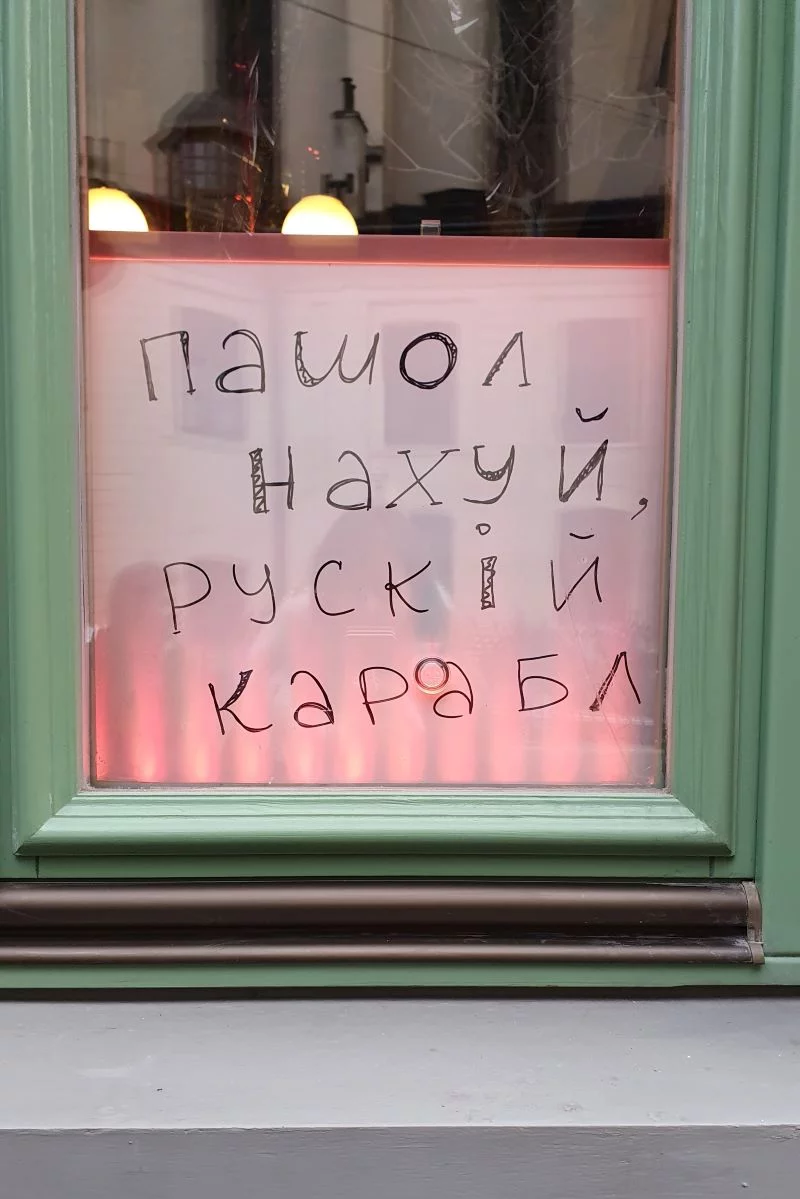 пашол
нахуй,
рускiй
карабл